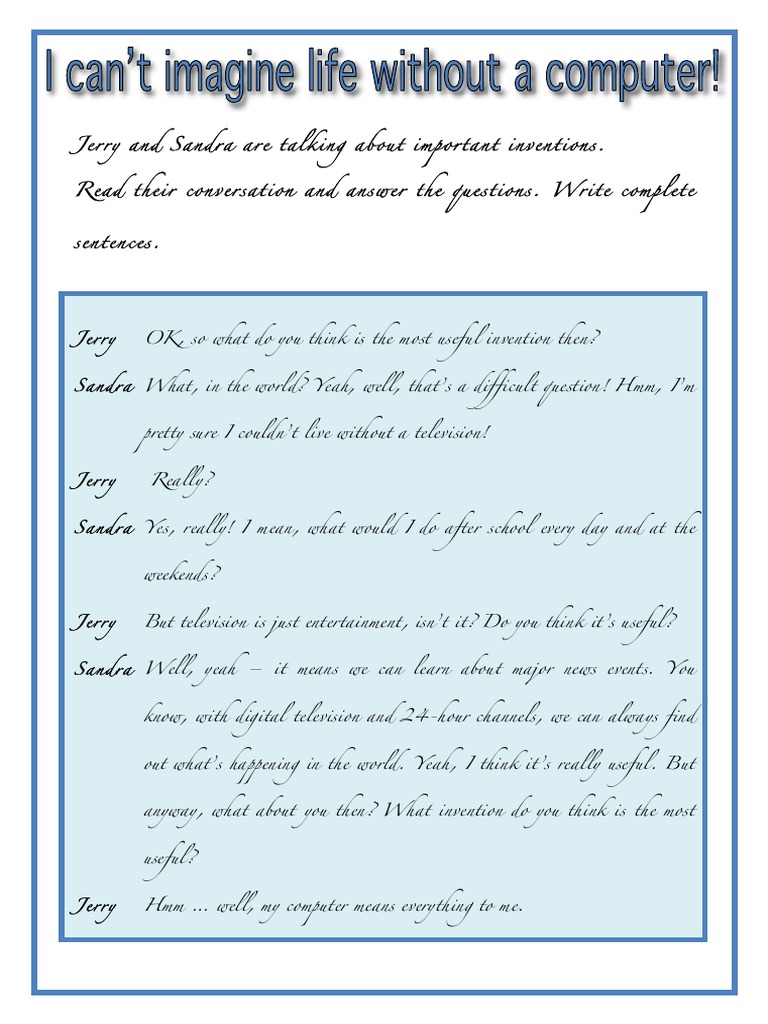 I can't imagine life without a computer!
Jerry and Sandra are talking about important inventions.
Read their conversation and answer the questions. Write complete
sentences.
Jerry OK, so what do you think is the most useful invention then?
Sandra What, in the world? Yeah, well, that's a difficult question! Hmm, I'm
pretty sure I couldn't live without a television!
Jerry Really?
Sandra Yes, really! I mean, what would I do after school every day and at the
weekends?
Jerry But television is just entertainment, isn't it? Do you think it's useful?
Sandra Well, yeah – it means we can learn about major news events. You
know, with digital television and 24-hour channels, we can always find
out what's happening in the world. Yeah, I think it's really useful. But
anyway, what about you then? What invention do you think is the most
useful?
Jerry Hmm ... well, my computer means everything to me.